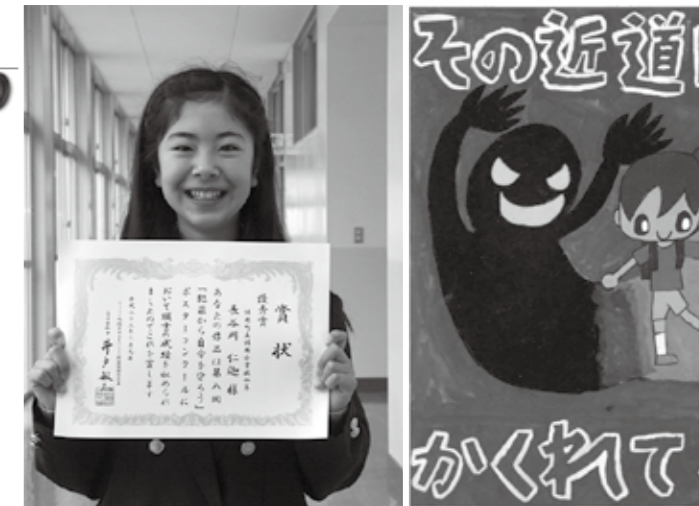 賞状
優秀賞
長谷川 仁迦 様
あなたの作品は第八回
「犯罪から自分を守ろう」
ポスターコンクールに
おいて頭書の成績を収められ
ましたのでこれを賞します
その近道
かくれて